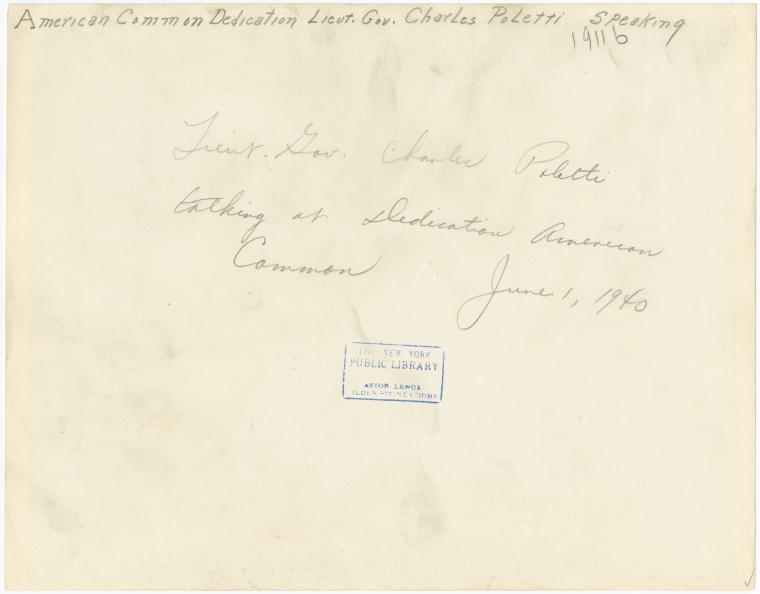 American Common Dedication Lieut. Gov. Charles Poletti Speaking
1911b
Lieut. Gov. Charles Poletti
talking at Dedication American
Common June 1, 1940
THE NEW YORK
PUBLIC LIBRARY
ASTOR, LENOX
TILDEN FOUNDATIONS